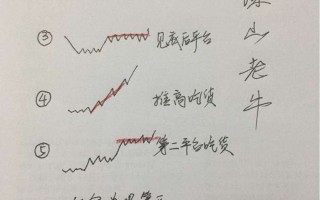 ③ 见底后平台
④ 推高吃货
⑤ 第二平台吃货
山
老
牛